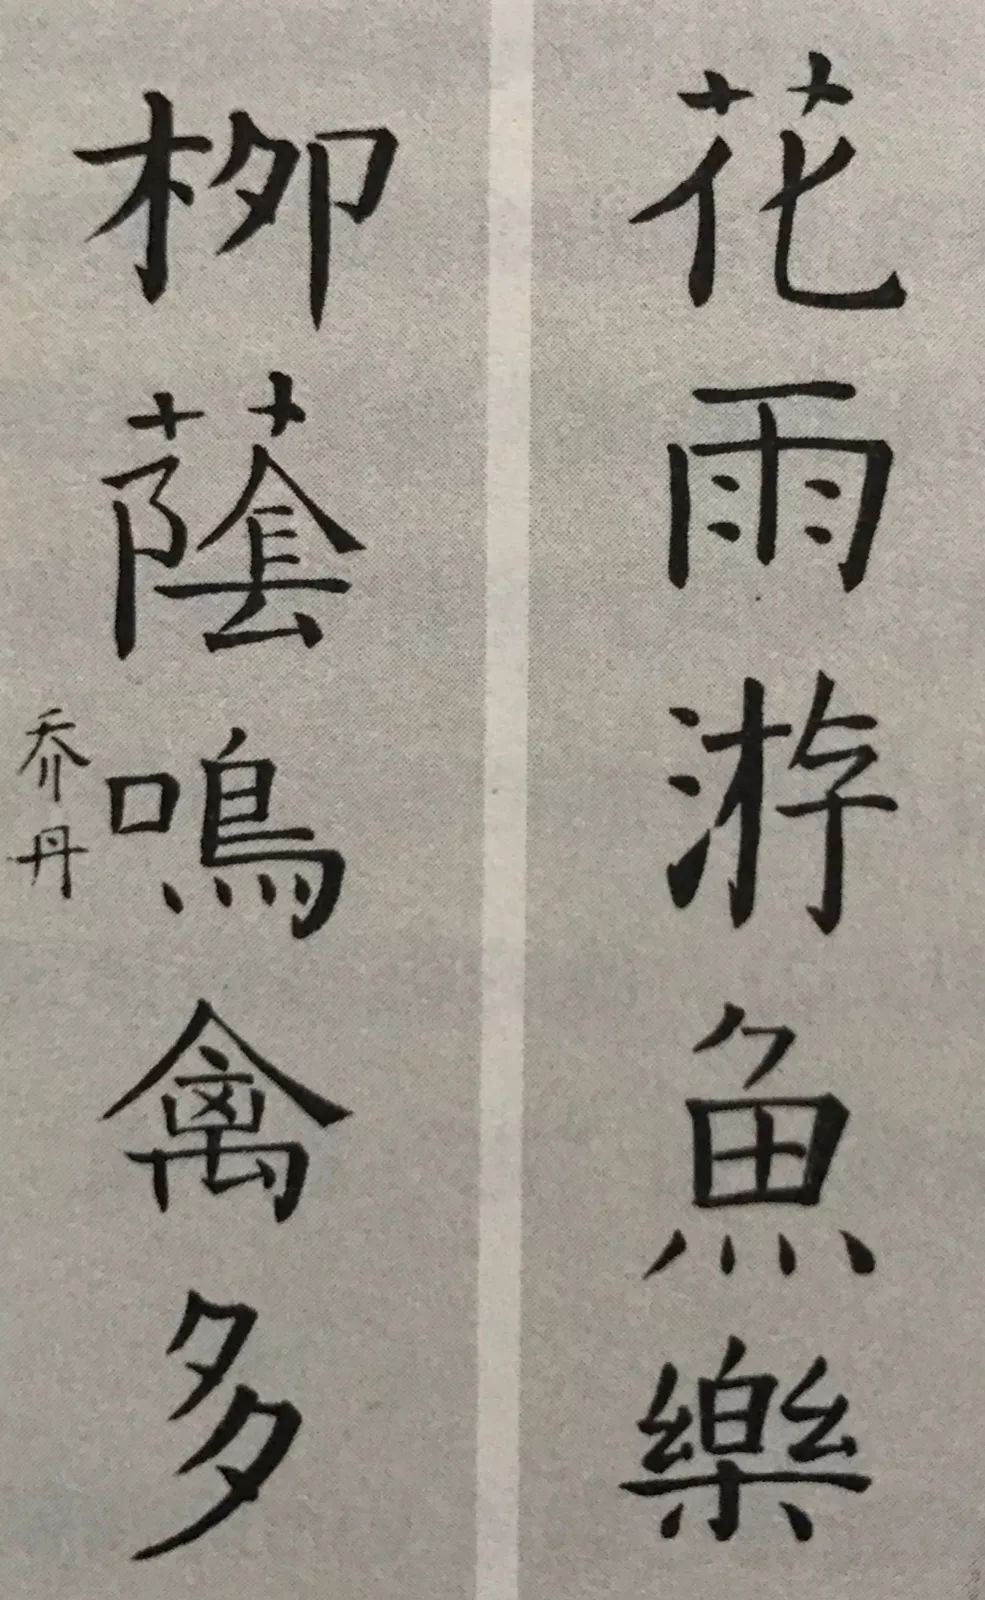 花雨游魚樂
柳蔭鳴禽多
乔丹